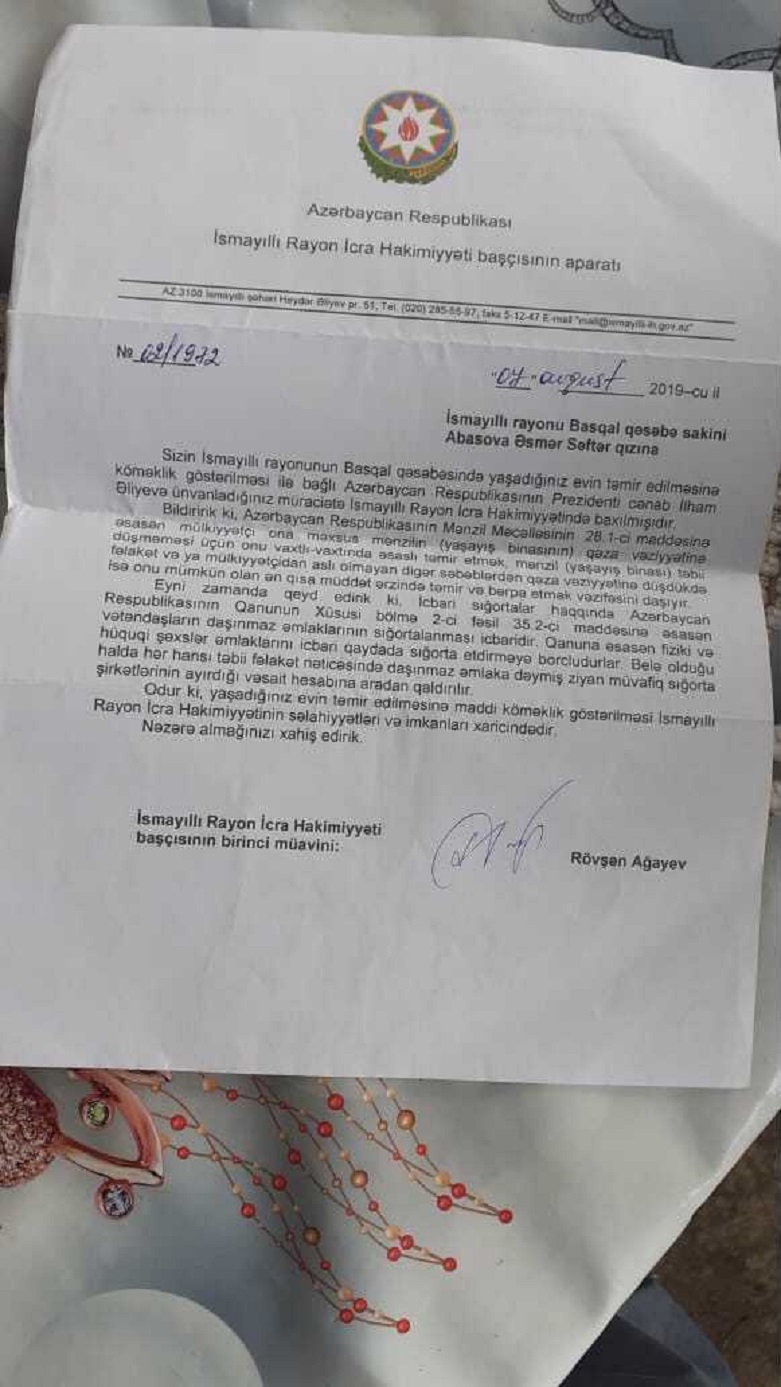 Azərbaycan Respublikası
İsmayıllı Rayon İcra Hakimiyyəti başçısının aparatı
AZ 3100 İsmayıllı şəhəri Heydər Əliyev pr. 51, Tel. (020) 285-55-97, faks 5-12-47 E-mail "mail@ismayilli-ih.gov.az"
№ 02/1932
"07" avgust 2019–cu il
İsmayıllı rayonu Basqal qəsəbə sakini
Abasova Əsmər Səftər qızına
Sizin İsmayıllı rayonunun Basqal qəsəbəsində yaşadığınız evin təmir edilməsinə
köməklik göstərilməsi ilə bağlı Azərbaycan Respublikasının Prezidenti cənab İlham
Əliyevə ünvanladığınız müraciətə İsmayıllı Rayon İcra Hakimiyyətində baxılmışıdır.
Bildirik ki, Azərbaycan Respublikasının Mənzil Məcəlləsinin 28.1-ci maddəsinə
əsasən mülkiyyətçi ona məxsus mənzilin (yaşayış binasının) qəza vəziyyətinə
düşməməsi üçün onu vaxtlı-vaxtında əsaslı təmir etmək, mənzil (yaşayış binası) təbii
fəlakət və ya mülkiyyətçidən aslı olmayan digər səbəblərdən qəza vəziyyətinə düşdükdə
isə onu mümkün olan ən qısa müddət ərzində təmir və bərpa etmək vəzifəsini daşıyır.
Eyni zamanda qeyd edirik ki, İcbari sığortalar haqqında Azərbaycan
Respublikasının Qanunun Xüsusi bölmə 2-ci fəsil 35.2-ci maddəsinə əsasən
vətəndaşların daşınmaz əmlaklarının sığortalanması icbaridir. Qanuna əsasən fiziki və
hüquqi şəxslər əmlaklarını icbari qaydada sığorta etdirməyə borcludurlar. Belə olduğu
halda hər hansı təbii fəlakət nəticəsində daşınmaz əmlaka dəymiş ziyan müvafiq sığorta
şirkətlərinin ayırdığı vəsait hesabına aradan qaldırılır.
Odur ki, yaşadığınız evin təmir edilməsinə maddi köməklik göstərilməsi İsmayıllı
Rayon İcra Hakimiyyətinin səlahiyyətləri və imkanları xaricindədir.
Nəzərə almağınızı xahiş edirik.
İsmayıllı Rayon İcra Hakimiyyəti
başçısının birinci müavini:
Rövşən Ağayev